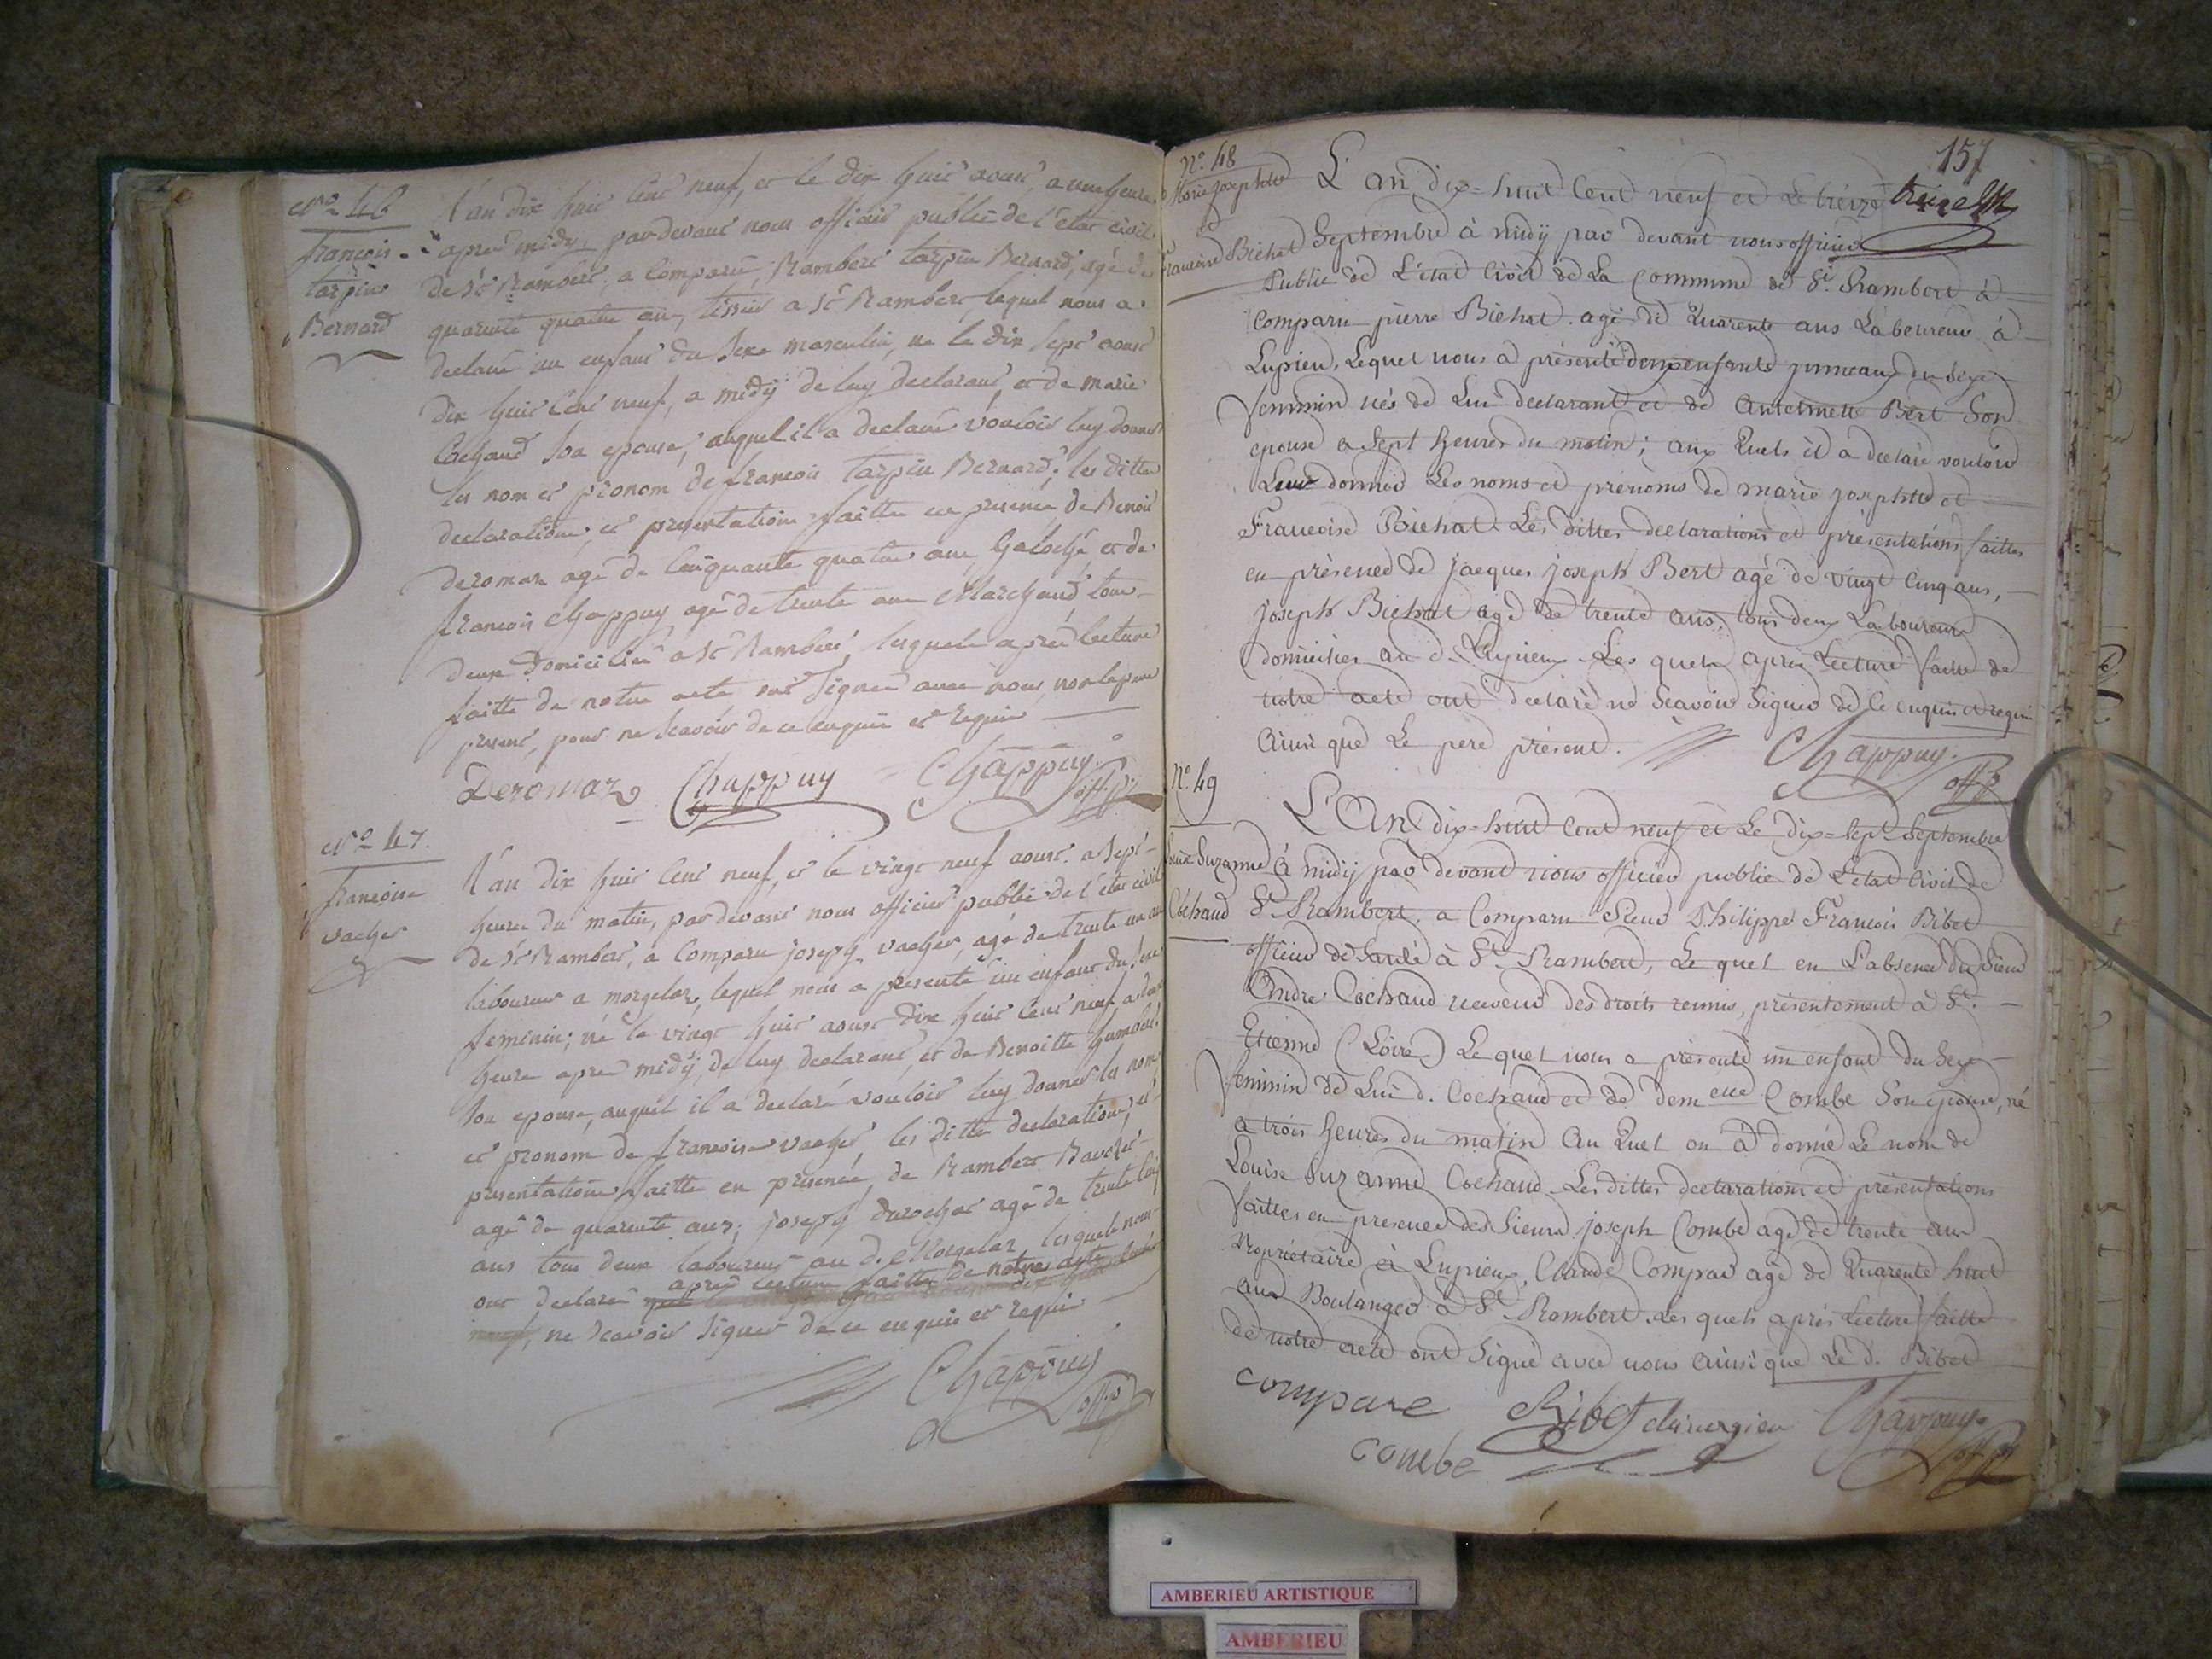 N.º 46
françois
tarpin
Bernard
L'an dix huit Cent neuf, et le dix huit aoust, a une heure
apres midy, pardevant nous officier public de l'etat civil
de St Rambert, a Comparu, Rambert tarpin Bernard, agé de
quarente quatre an, tissier a St Rambert, lequel nous a
declaré un enfant du sexe masculin, né le dix sept aoust
dix huit Cent neuf, a midÿ de luy declarant, et de marie
Cochand son epouse, auquel il a declaré vouloir luy donner
les nom et pronom de françois tarpin Bernard, les dittes
declaration, et presentation faitte en presence de Benoit
deromas agé de Cinquante quatre ans, et de
françois Chappuy agé de trente ans Marchand, tous
deux Domicilié a St Rambert, lesquels apres lecture
faitte de notre acte ont signée avec nous, non le pere
present, pour ne scavoir de ce enquis et requis
Deromaz Chappuy Chappuy
off. p.
N.º 47.
françoise
vacher
L'an dix huit Cent neuf, et le vingt neuf aoust a sept
heures du matin, pardevant nous officier public de l'état civil
de St Rambert, a Comparu joseph vacher, agé de trente un an
laboureur a morgelas, lequel nous a presenté un enfant du sexe
feminin; né le vingt huit aoust dix huit Cent neuf a
heure apres midÿ, de luy declarant, et de Benoitte humbert
son epouse, auquel il a declaré vouloir luy donner les nom
et pronom de françoise vacher, les ditte declaration, et
presentation faitte en presence, de Rambert Ravolet
agé de quarente ans; joseph durochas agé de trente cinq
ans tous deux laboureurs au d. Morgelas, lesquels nous
ont declaré apres lecture faitte de notre acte
ne scavoir signer de ce enquis et requis
Chappuy
off. p.
157
Nº. 48
Marie josephtte
et
Francoise Bichat
L'an dix-huit Cent neuf et Le treize treize
Septembre à midÿ par devant nous officier
Public de L'état Civil de La Commune de St. Rambert à
Comparu pierre Bichat agé de Quarente ans Laboureur à
Lupieu, Lequel nous a présenté deux enfants jumeaux du sexe
feminin nés de Lui declarant et de Antelmette Bert Son
epouse a Sept heures du matin; aux Quels il a declaré vouloir
Leur donner Les noms et prénoms de marie josephtte et
Francoise Bichat. Les dittes declarations et présentations faittes
en présence de jacques joseph Bert agé de vingt Cinq ans,
joseph Bichat agé de trente ans, tous deux Laboureurs
domiciliés au d. Lupieu. Les quels apres Lecture faitte de
nôtre acte ont declaré ne Scavoir Signer de Ce enquis et requis
Ainsi que Le pere présent. Chappuy.
off. p.
Nº. 49
Louise Suzanne
Cochaud
L'An dix-huit Cent neuf et Le dix-Sept Septembre
à midÿ par devant nous officier public de L'état Civil de
St. Rambert, a Comparu Sieur Philippe François Ribet
officier de Santé à St. Rambert, Le quel en L'absence du Sieur
Andre Cochaud receveur des droits reunis, présentement à St.
Etienne (Loire) Le quel nous a présenté un enfant du Sexe
feminin de Lui d. Cochaud et de demelle Combe Son epouse, né
a trois heures du matin Au Quel on à donné Le nom de
Louise Suzanne Cochaud. Les dittes declarations et présentations
faittes en presence des Sieurs joseph Combe agé de trente ans
Propriétaire à Lupieu, Claude Compas agé de Quarente huit
ans Boulanger à St. Rambert. Les quels apres Lecture faitte
de notre acte ont Signé avec nous ainsi que Le d. Ribet
compare Ribet chirurgien Chappuy.
combe off. p.
AMBERIEU ARTISTIQUE
AMBERIEU